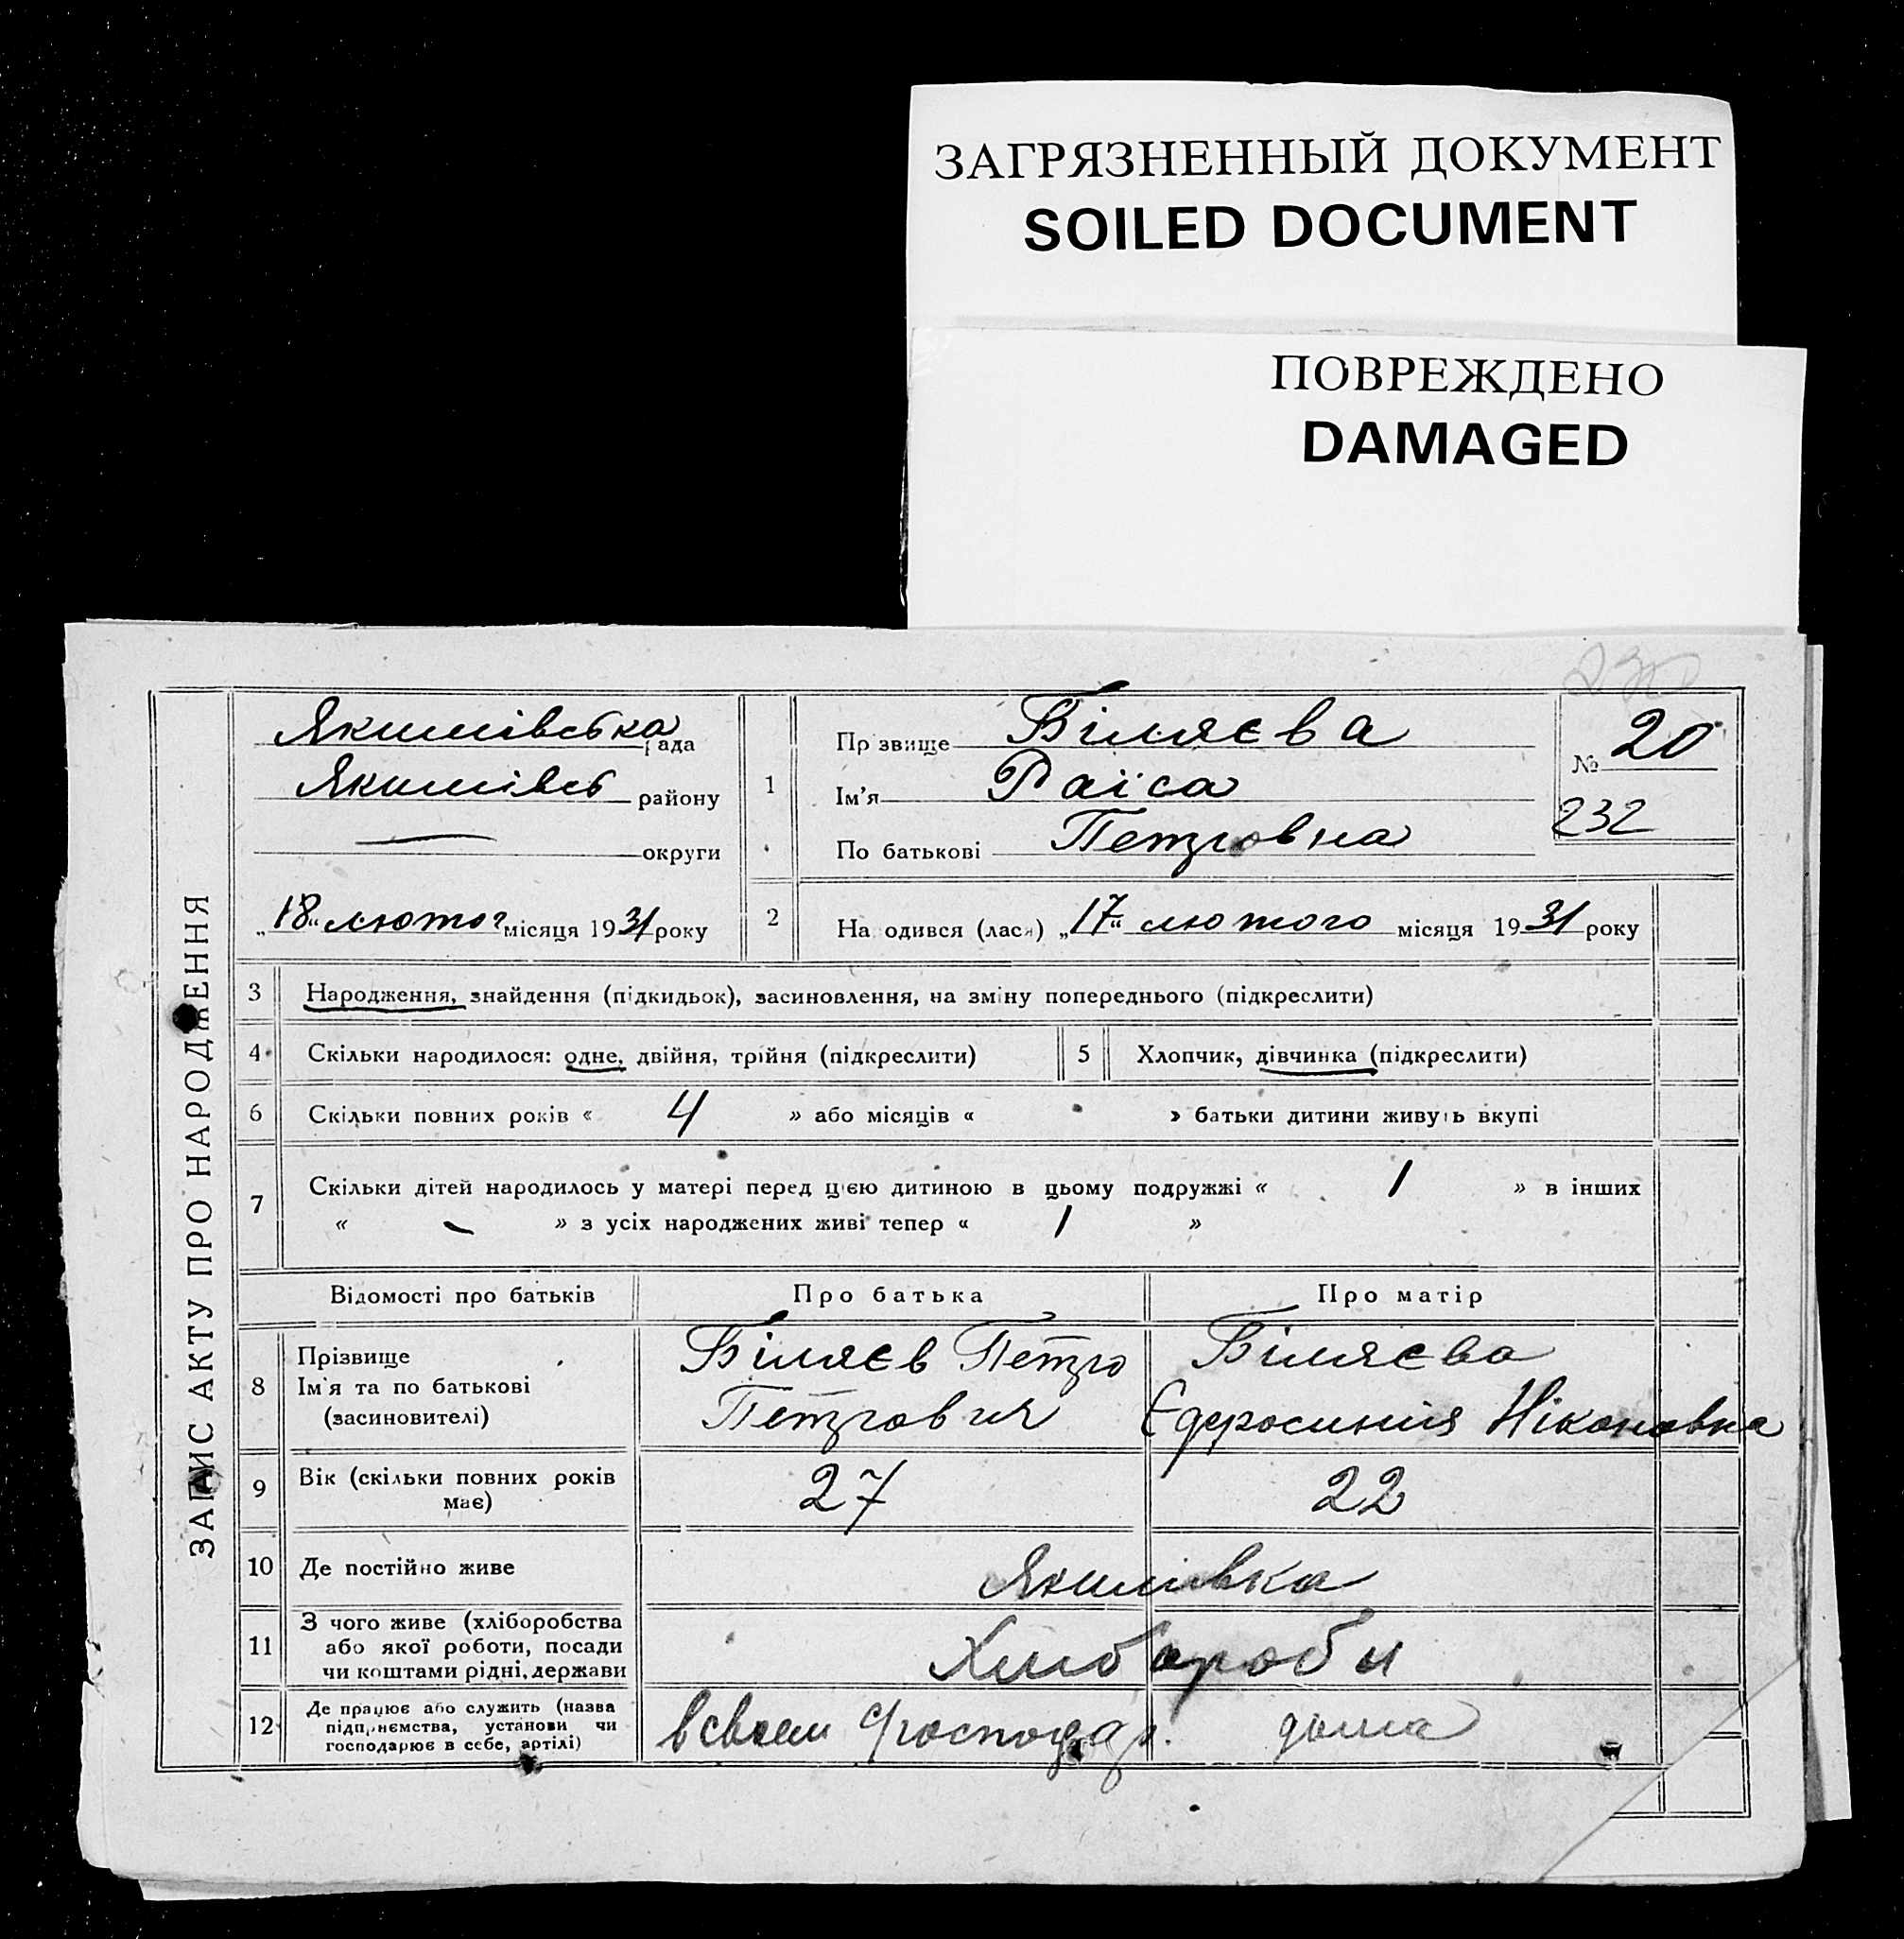 ЗАГРЯЗНЕННЫЙ ДОКУМЕНТ
SOILED DOCUMENT
ПОВРЕЖДЕНО
DAMAGED
ЗАПИС АКТУ ПРО НАРОДЖЕННЯ
Якимівська рада
Якимівсь району
— округи
„18“ лютог місяця 1931 року
1
Пр звище Біляєва
Ім'я Раїса
По батькові Петровна
№ 20
232
2 На одився (лася) „17“ лютого місяця 1931 року
3 Народження, знайдення (підкидьок), засиновлення, на зміну попереднього (підкреслити)
4 Скільки народилося: одне, двійня, трійня (підкреслити) 5 Хлопчик, дівчинка (підкреслити)
6 Скільки повних років « 4 » або місяців « » батьки дитини живуть вкупі
7 Скільки дітей народилось у матері перед цією дитиною в цьому подружжі « 1 » в інших
« – » з усіх народжених живі тепер « 1 »
Відомості про батьків Про батька Про матір
8 Прізвище
Ім'я та по батькові
(засиновителі)
Біляєв Петро
Петрович
Біляєва
Єфросинія Ніконовна
9 Вік (скільки повних років
має)
27 22
10 Де постійно живе Якимівка
11 З чого живе (хліборобства
або якої роботи, посади
чи коштами рідні, держави
Хлібороби
12 Де працює або служить (назва
підприємства, установи чи
господарює в себе, артілі)
в своем господар. дома